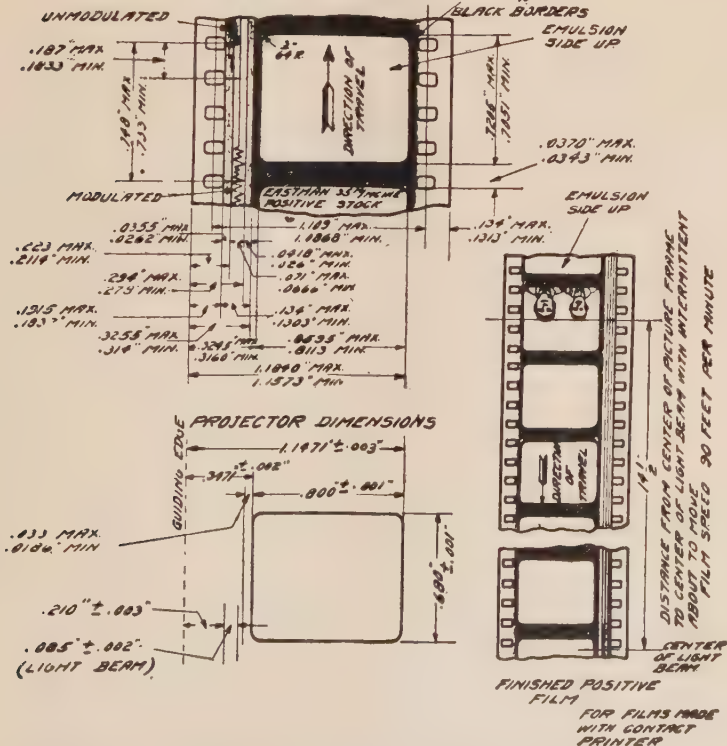 UNMODULATED
BLACK BORDERS
EMULSION
SIDE UP
.187" MAX
.1833" MIN.
.748" MAX
.733" MIN.
3"
64 R.
DIRECTION OF
TRAVEL
.7216" MAX
.7051" MIN.
.0370" MAX.
.0343" MIN.
MODULATED
EASTMAN
POSITIVE STOCK
.0355" MAX
.0262" MIN.
1.109" MAX
1.0868" MIN.
.134" MAX.
.1313" MIN.
.223 MAX.
.2114" MIN.
.0418" MAX
.026" MIN.
.071" MAX
.0666" MIN
.294" MAX.
.279" MIN.
.1915" MAX
.1837" MIN.
.134" MAX.
.1303" MIN.
.3255" MAX
.314" MIN.
.3245" MAX
.3160" MIN.
.8535" MAX.
.8113 MIN.
1.1840" MAX.
1.1573" MIN.
EMULSION
SIDE UP
DIRECTION
OF
TRAVEL
14 1/2"
DISTANCE FROM CENTER OF PICTURE FRAME
TO CENTER OF LIGHT BEAM WITH INTERMITTENT
ABOUT TO MOVE
FILM SPEED 90 FEET PER MINUTE
PROJECTOR DIMENSIONS
GUIDING EDGE
1.1471" ± .003"
.3471" ± .002"
.800" ± .001"
.033 MAX.
.0186" MIN
.680"
± .001"
.210" ± .003"
.085" ± .002"
(LIGHT BEAM)
CENTER
OF LIGHT
BEAM
FINISHED POSITIVE
FILM
FOR FILMS MADE
WITH CONTACT
PRINTER